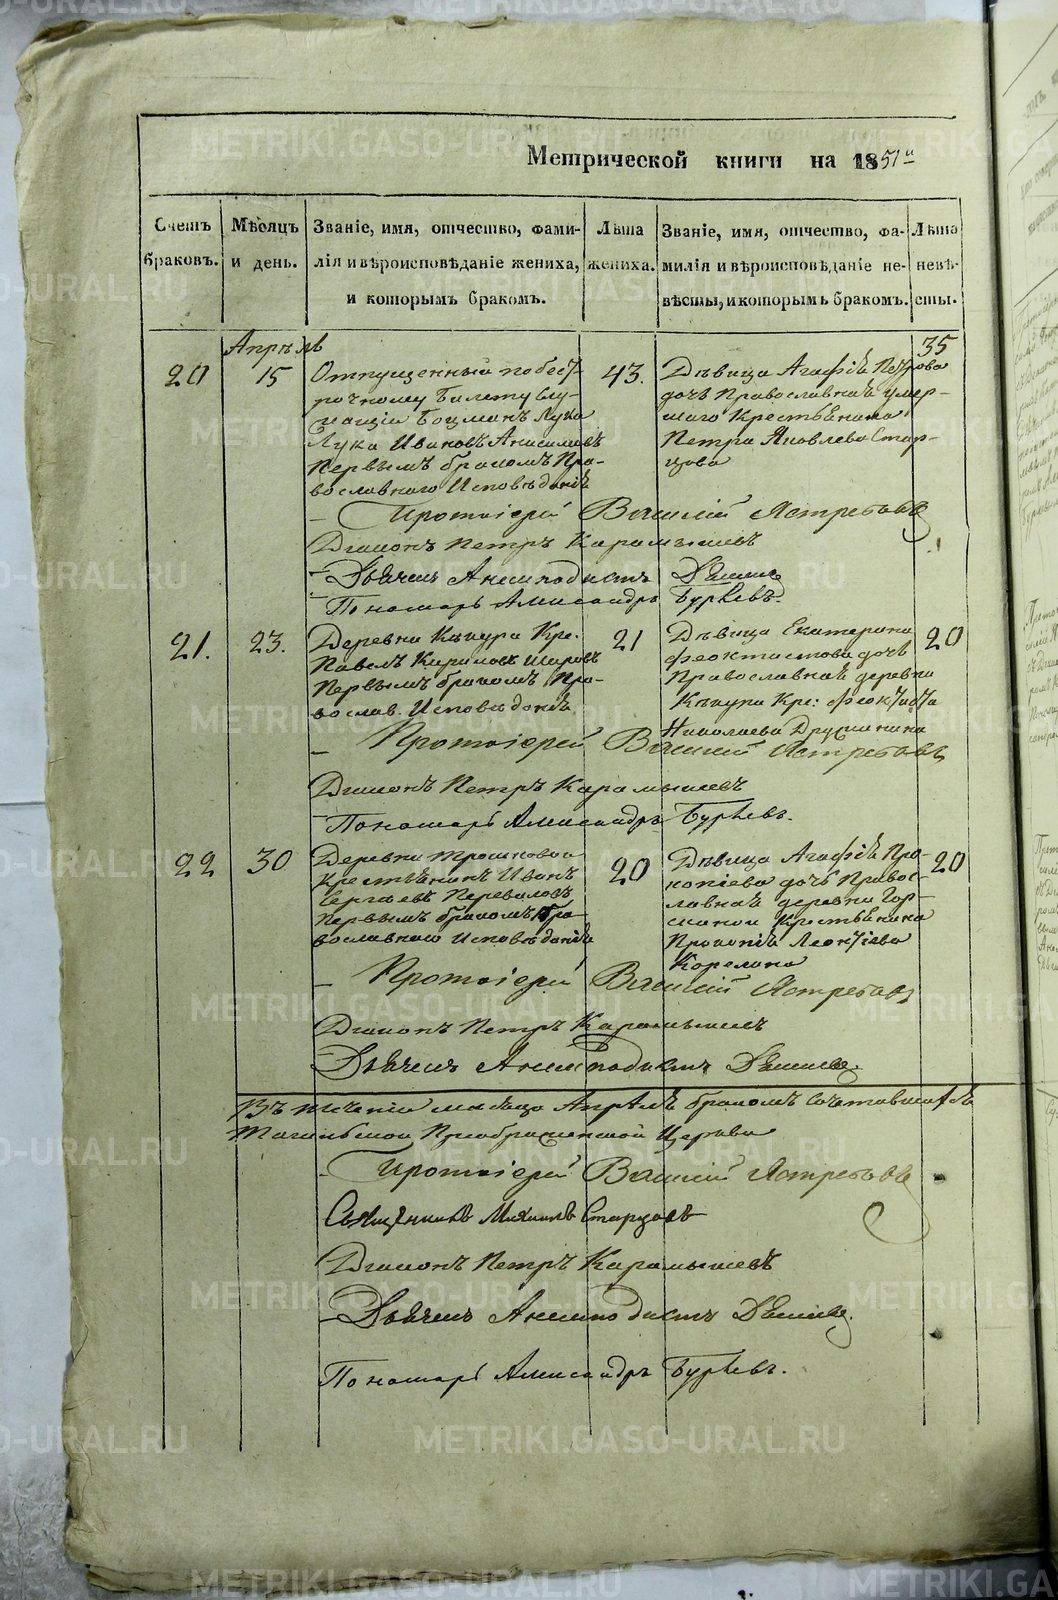 Метрической книги на 1851й
Счетъ браковъ.
Мѣсяцъ и день.
Званіе, имя, отчество, фами-
лія и вѣроисповѣданіе жениха,
и которымъ бракомъ.
Лѣта
жениха.
Званіе, имя, отчество, фа-
милія и вѣроисповѣданіе не-
вѣсты, и которымъ бракомъ.
Лѣта
невѣ-
сты.
Апрѣль
20
15
Отпущенный по безс-
рочному билету Слу-
жащій Боцманъ Лука
Лука Ивановъ Анисимовъ
Первымъ бракомъ Пра-
вославнаго Исповѣданія
43.
Дѣвица Агафія Петрова
дочь Православная умер-
шаго Крестьянина
Петра Яковлева Стар-
цова
35
Протоіерей Василій Ястребовъ
Діаконъ Петръ Карамышевъ
Дьячекъ Анемподистъ
Пономарь Александръ
21.
23.
Деревни Кре.
Павелъ Кириловъ
Первымъ бракомъ Пра-
вослав. Исповѣданія
21
Дѣвица Екатерина
Феоктистова дочь
Православная деревни
Кре: Феоктиста
Николаева Дружинина
20
Протоіерей Василій Ястребовъ
Діаконъ Петръ Карамышевъ
Пономарь Александръ
22
30
Деревни Трошковой
Крестьянинъ Иванъ
Сергѣевъ Переваловъ
Первымъ бракомъ Пра-
вославнаго Исповѣданія
20
Дѣвица Агафія Про-
копіева дочь Правос-
лавная деревни Гор-
Крестьянина
Прокопія Леонтіева
Корелина
20
Протоіерей Василій Ястребовъ
Діаконъ Петръ Карамышевъ
Дьячекъ Анемподистъ
Въ теченіи мѣсяца Апрѣля бракомъ сочетавшихся
Преображенской Церкви
Протоіерей Василій Ястребовъ
Священникъ Михаилъ Старцовъ
Діаконъ Петръ Карамышевъ
Дьячекъ Анемподистъ
Пономарь Александръ
METRIKI.GASO-URAL.RU